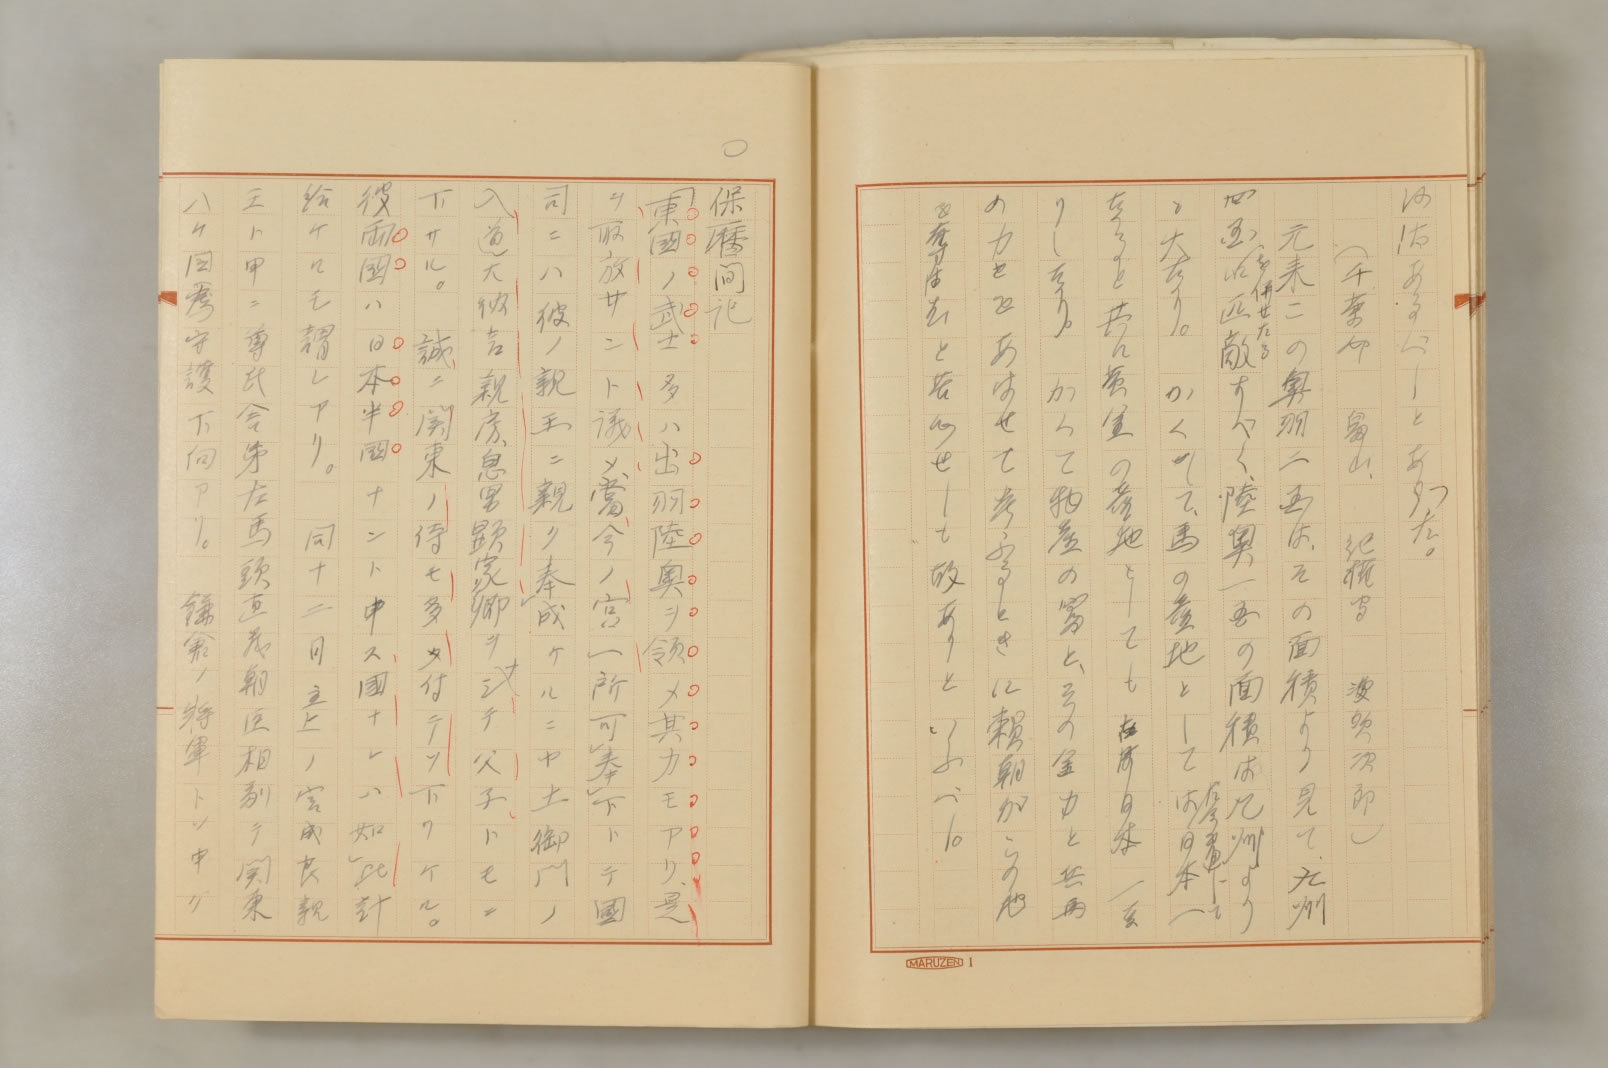 あるべしとあつた。
(千葉 畠山、紀權守 波多次郎)
元来この奥羽二国は、その面積より見て、九州
四国を併せたるに匹敵すべく、陸奥一国の面積は九州より
も大なり。かくして、馬の産地としては日本一
なると共に黄金の産地としても日本一
りしなり。かくて物産の富と、その金力と兵馬
の力とをあはせて考ふるときに頼朝がこの地
と苦心せしも故ありといふべし。
MARUZEN 1
○
保暦間記
東國ノ武士多ハ出羽陸奥ヲ領メ其力モアリ、是
ヲ取放サントト議メ、當今ノ宮一所可奉下トテ國
司ニハ彼ノ親王ニ親ク奉成ケルニヤ土御門ノ
入道大納言親房、息男顕家卿ヲ以テ父子トモニ
下サル。誠ニ関東ノ侍モ多ク付テゾ下リケル。
彼両國ハ日本半國ナント申ス國ナレハ如此計
給ケルモ謂レアリ。同十二月主上ノ宮成良親
王ト申ニ尊氏舎弟左馬頭直義朝臣相副テ関東
八ヶ国為守護下向アリ。鎌倉ノ將軍トゾ申ケ